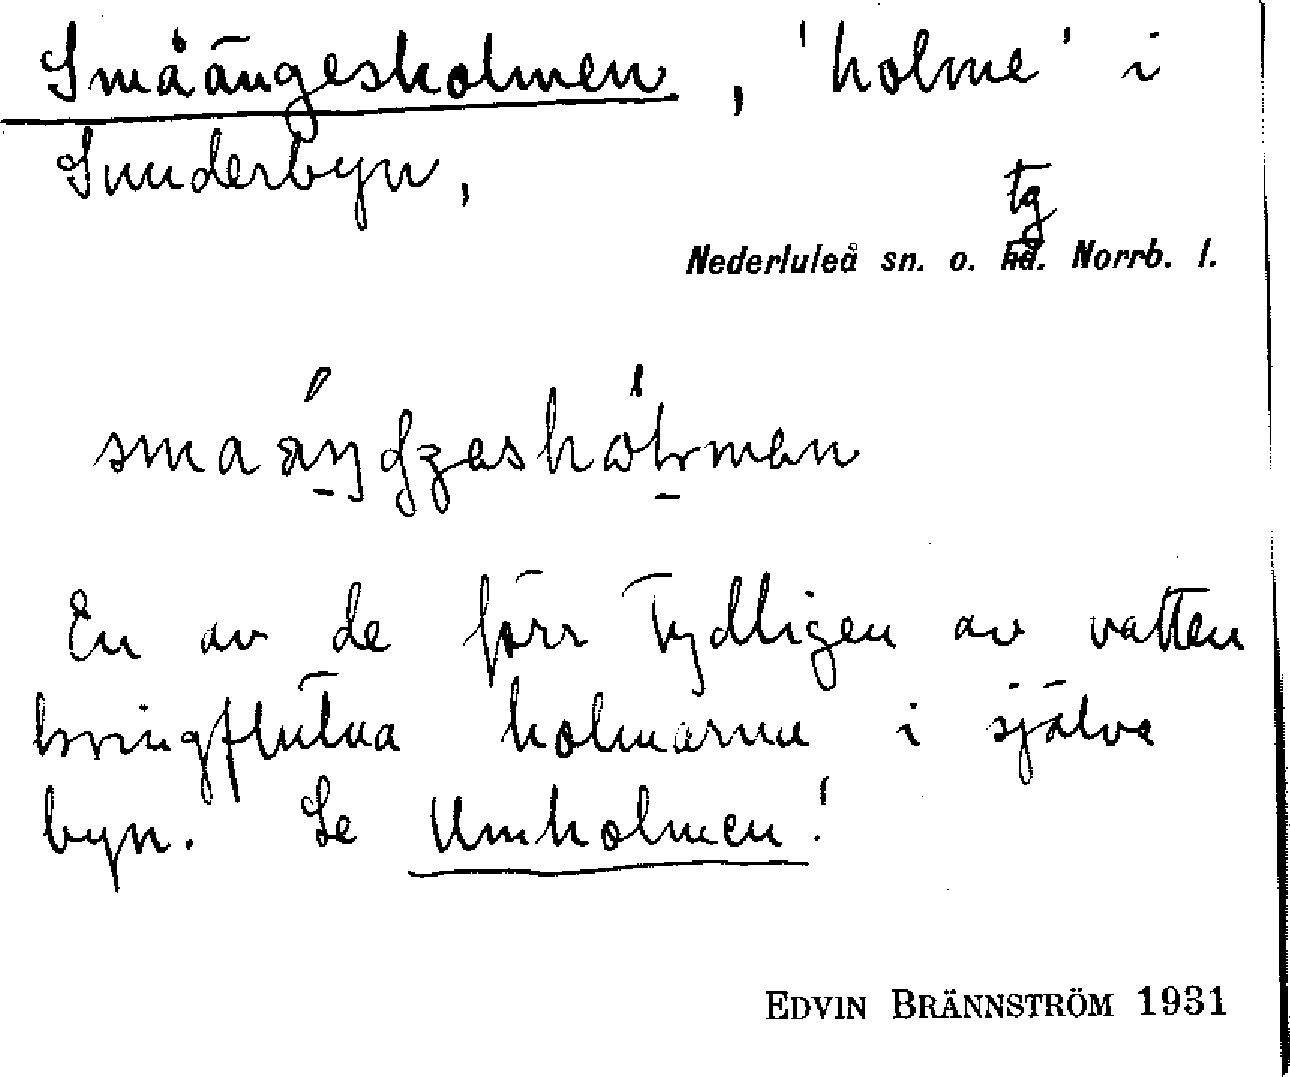 Småängesholmen, 'holme' i
Sunderbyn,
tg
Nederluleå sn. o. hd. Norrb. l.
En av de förr tydligen av vatten
kringflutna holmarna i själva
byn. Se Umholmen!
EDVIN BRÄNNSTRÖM 1931